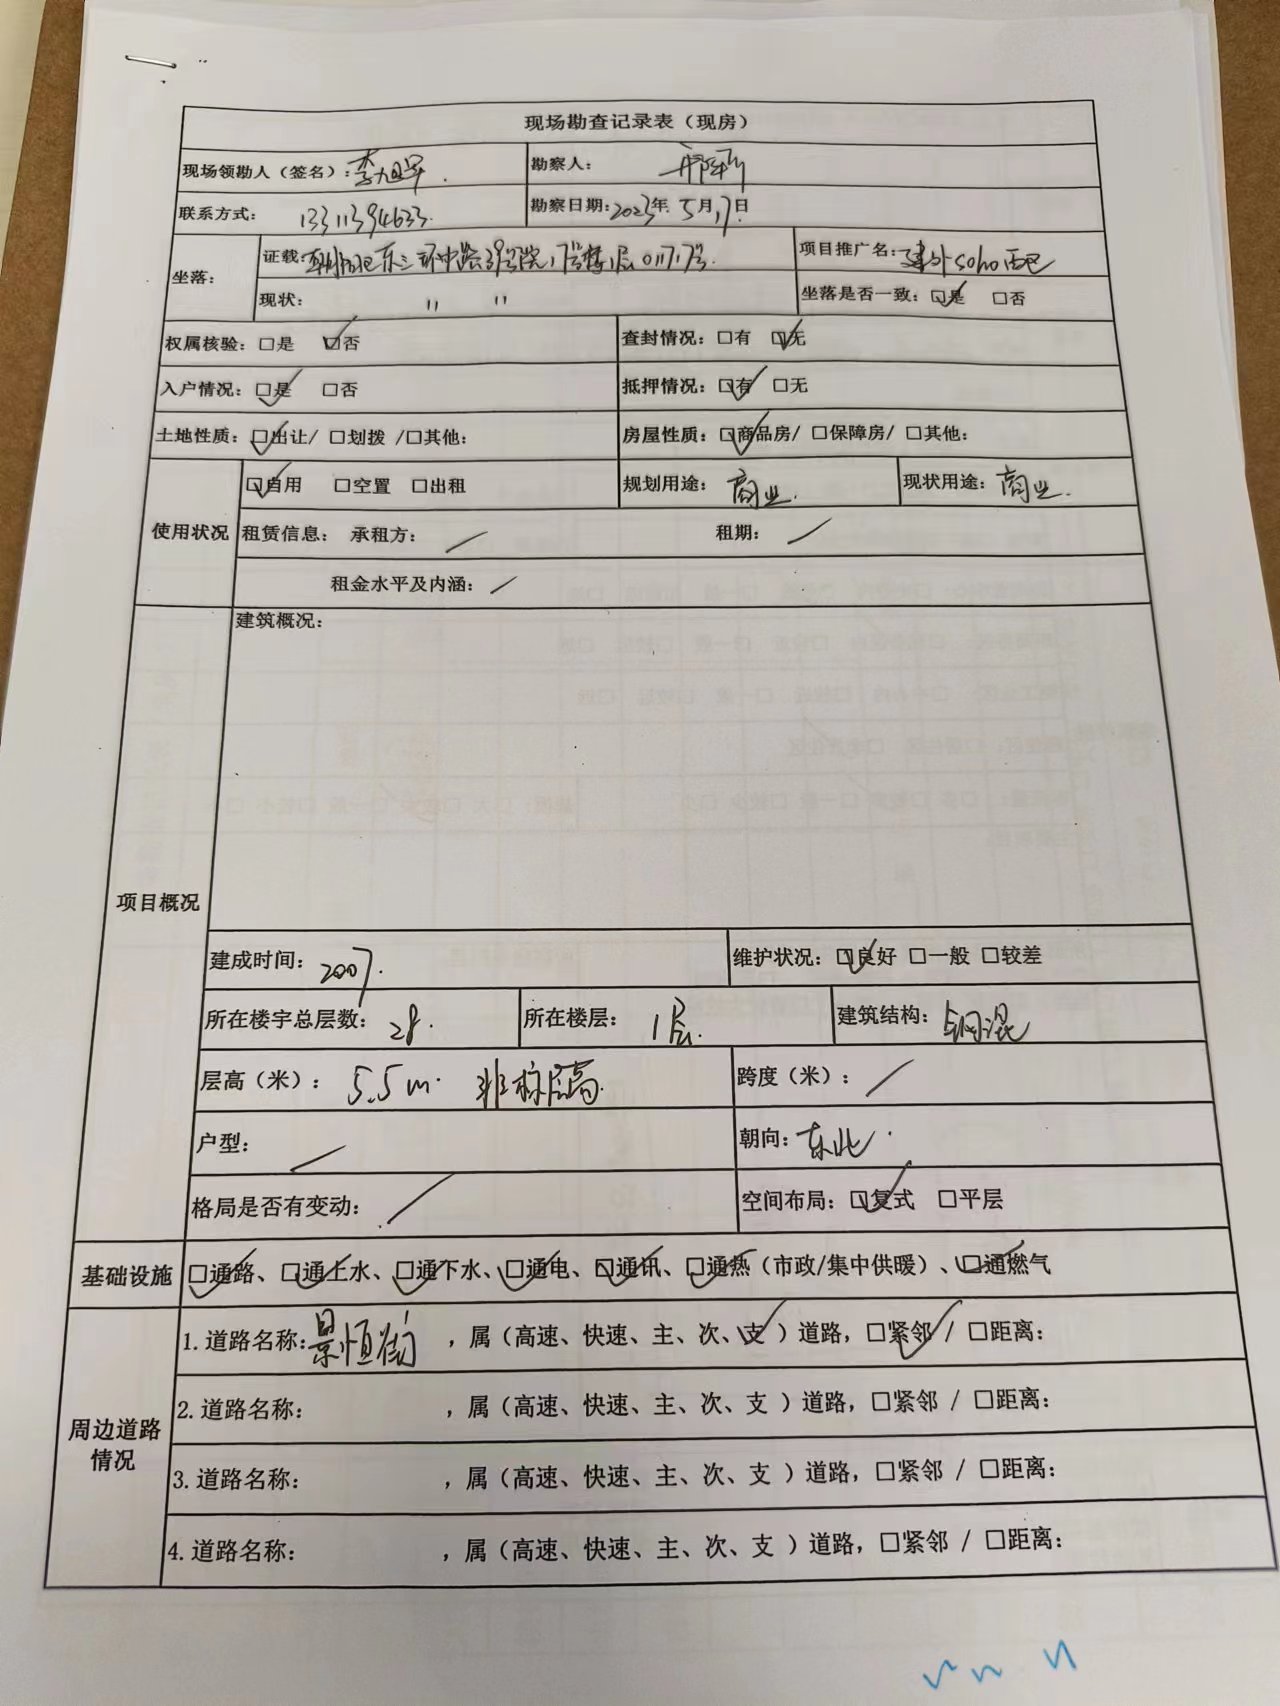 现场勘查记录表（现房）
现场领勘人（签名）：李旭军. 勘察人：
联系方式： 13311394633. 勘察日期：2023年.5月17日
坐落： 证载：朝阳区东三环中路39号院17号楼1层0117,1号. 项目推广名：建外soho西区
现状： 〃 〃 坐落是否一致：☑是 □否
权属核验：□是 ☑否 查封情况：□有 ☑无
入户情况：☑是 □否 抵押情况：☑有 □无
土地性质：☑出让/ □划拨 /□其他： 房屋性质：☑商品房/ □保障房/ □其他：
使用状况 ☑自用 □空置 □出租 规划用途：商业. 现状用途：商业.
租赁信息： 承租方： / 租期： /
租金水平及内涵： /
项目概况 建筑概况：
建成时间：2007. 维护状况：☑良好 □一般 □较差
所在楼宇总层数： 28. 所在楼层： 1层. 建筑结构：钢混
层高（米）： 5.5m. 非标层高. 跨度（米）： /
户型： / 朝向：东北.
格局是否有变动： / 空间布局：☑复式 □平层
基础设施 ☑通路、☑通上水、☑通下水、☑通电、☑通讯、☑通热（市政/集中供暖）、☑通燃气
周边道路情况 1.道路名称：景恒街 ，属（高速、快速、主、次、支✓）道路，☑紧邻 / □距离：
2.道路名称： ，属（高速、快速、主、次、支 ）道路，□紧邻 / □距离：
3.道路名称： ，属（高速、快速、主、次、支 ）道路，□紧邻 / □距离：
4.道路名称： ，属（高速、快速、主、次、支 ）道路，□紧邻 / □距离：